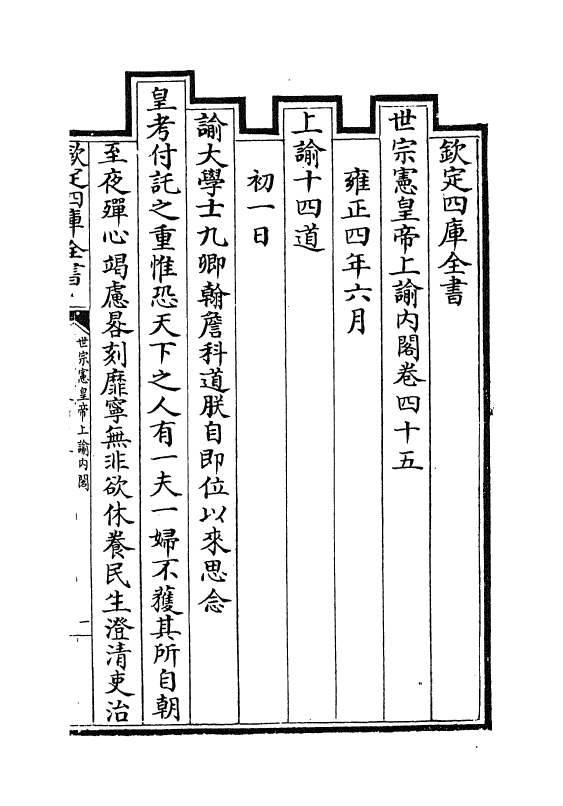 欽定四庫全書
世宗憲皇帝上諭内閣卷四十五
雍正四年六月
上諭十四道
初一日
諭大學士九卿翰詹科道朕自即位以來思念
皇考付託之重惟恐天下之人有一夫一婦不獲其所自朝
至夜殫心竭慮晷刻靡寧無非欲休養民生澄清吏治
欽定四庫全書
世宗憲皇帝上諭内閣
一